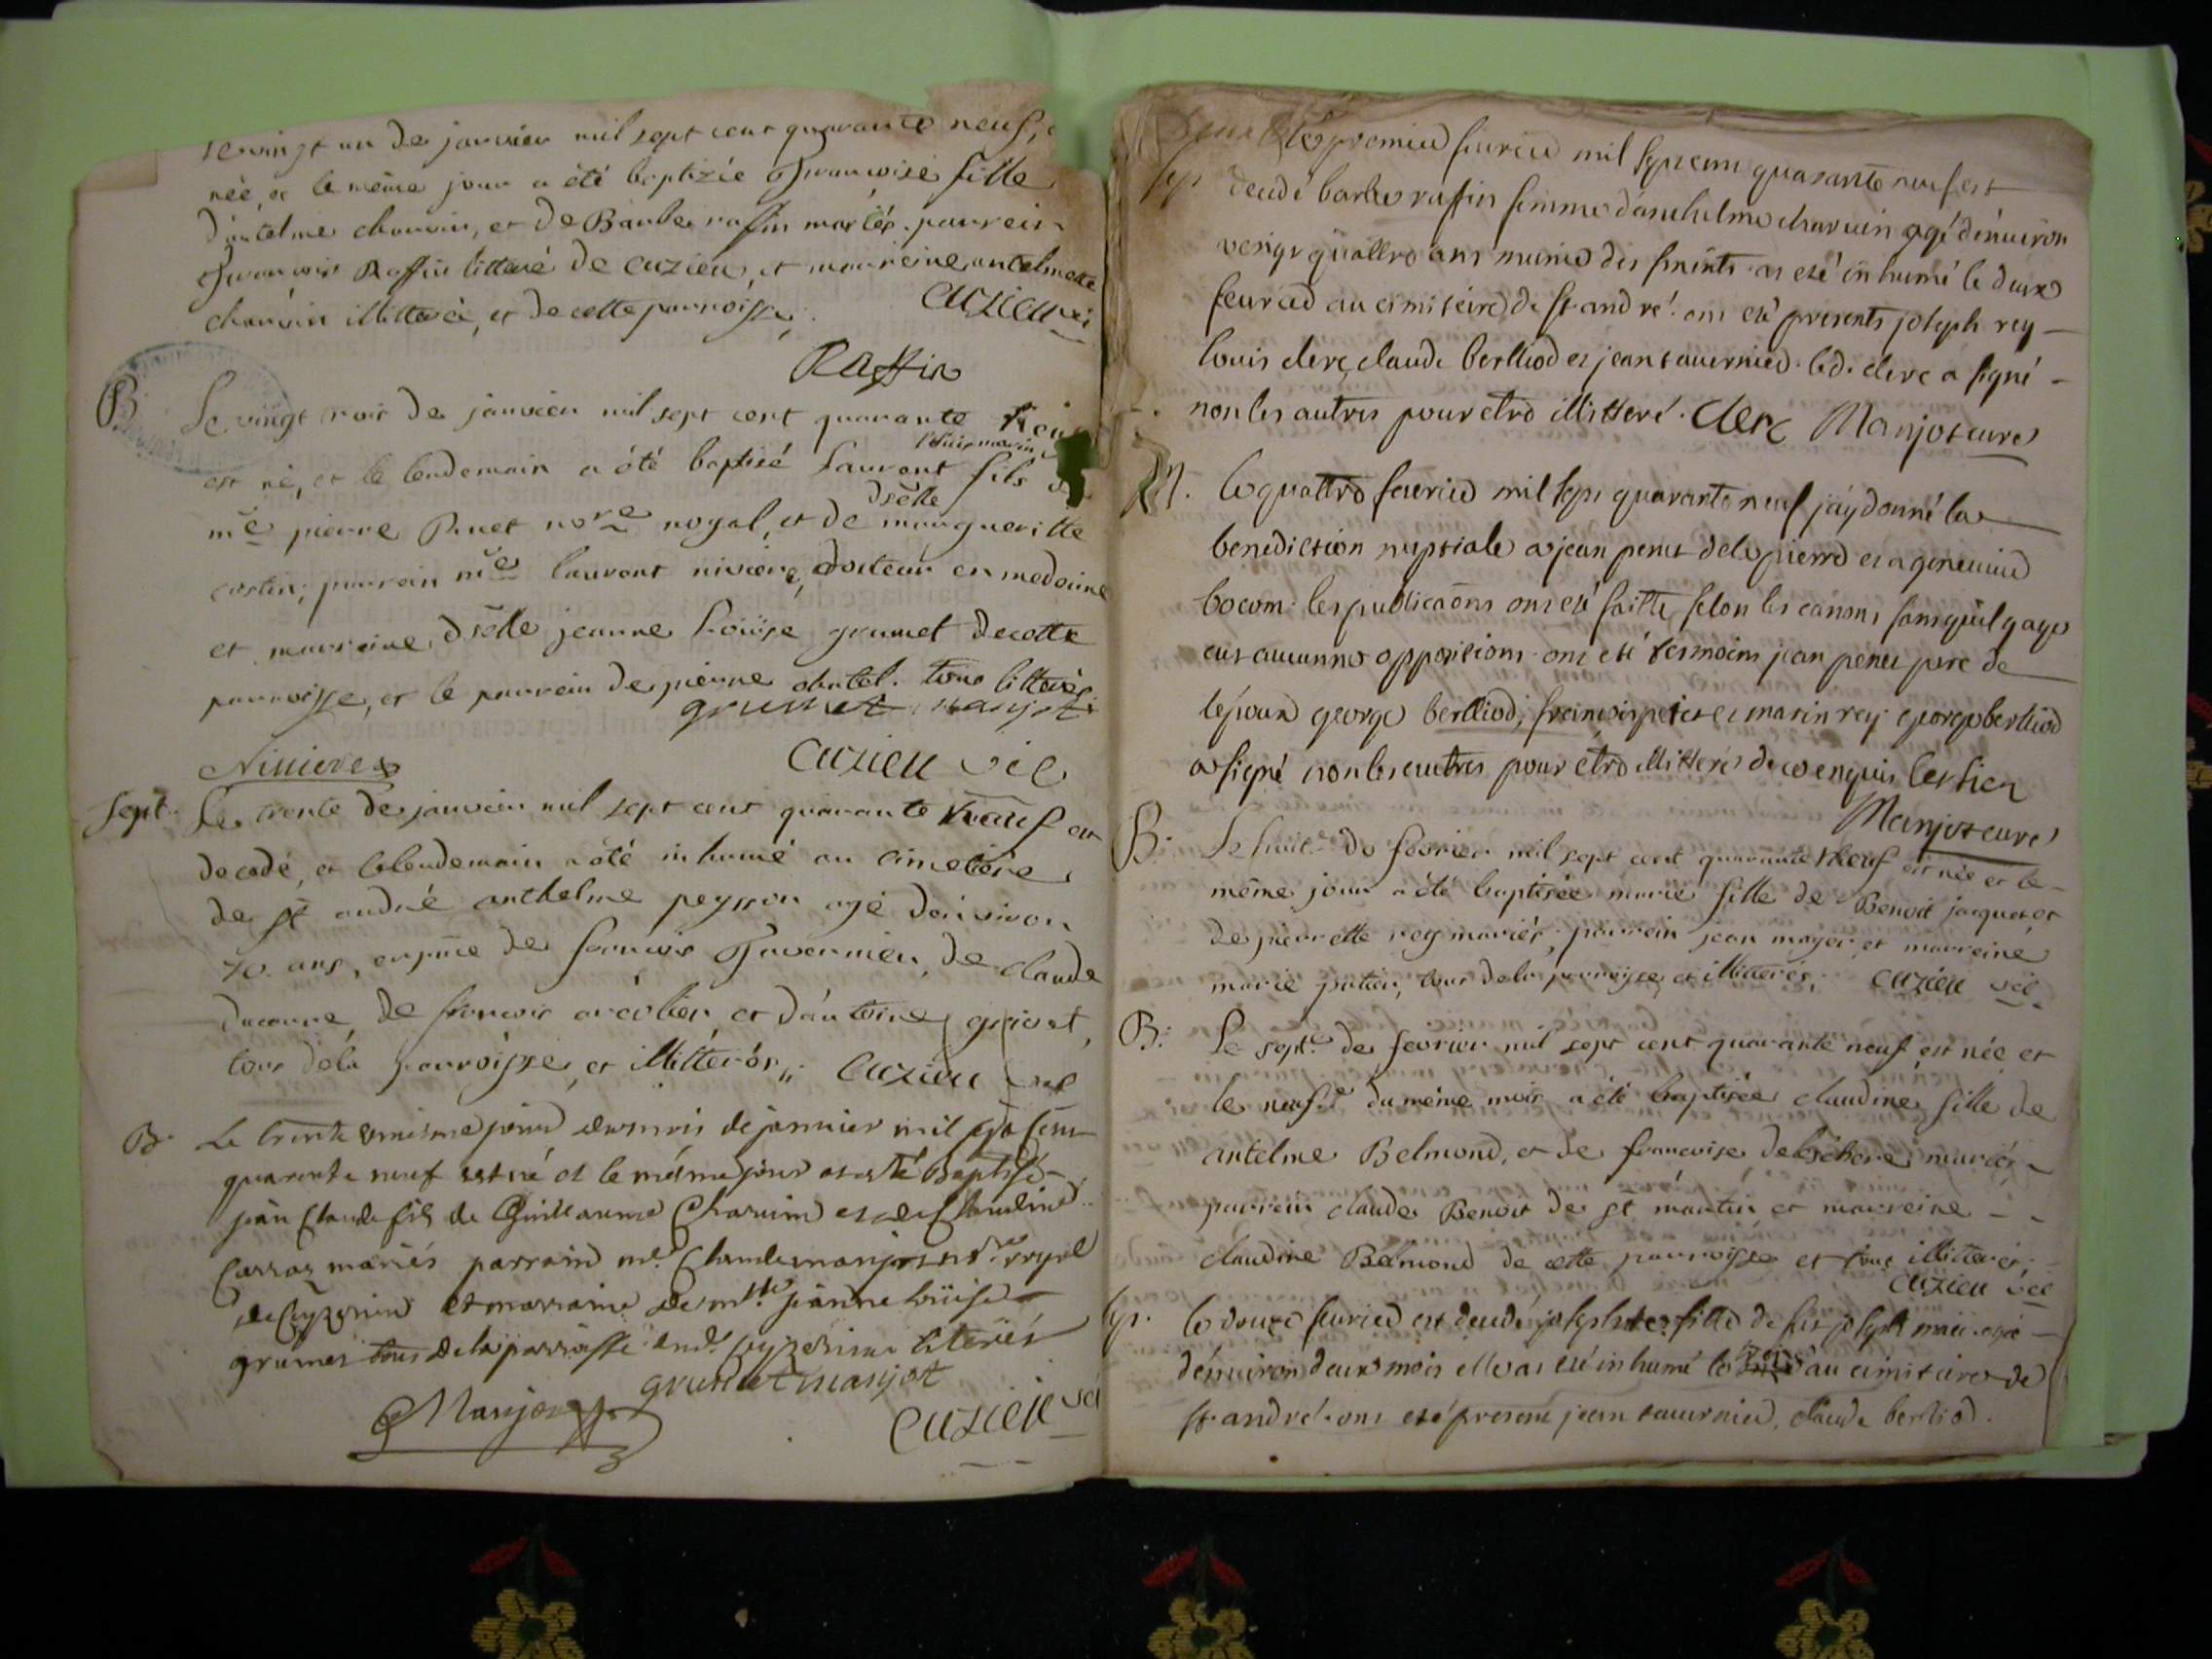 le vingt un de janvier mil sept cent quarante neuf, e
née, et le même jour a été baptizée françoise fille
d'antelme charvin, et de Barbe raffin mariés. parrein
françois Raffin litteré de cuzieu, et marreine antelmette
charvin illitterée, et de cette parroisse, cuzieu vic
Raffin
B. Le vingt trois de janvier mil sept cent quarante neuf
est né, et le lendemain a été baptisé Laurent fils de
me pierre no.re royal, et de dselle margueritte
parrein me laurent niviere, docteur en medecine
et marreine dselle jeanne Loüise grumet de cette
parroisse, et le parrein de pierre chatel. tous litterés.
grumet manjot
Niviere cuzieu vic
Sept. Le trente de janvier mil sept cent quarante neuf est
decedé, et le lendemain a été inhumé au cimetiere
de st andré anthelme peysson agé d'environ
70 ans, en pnce de francois Tavernier, de claude
de francois et d'antoine
tous de la parroisse, et illitterés,, Cuzieu vic
B. Le trente unieme jour du mois de janvier mil sept cent
quarante neuf est né et le même jour a esté Baptisé
jean Claude fils de Guillaume Charvin et de Claudine
Carraz mariés parrain me. Claude manjot nore. royal
de Ceyzerieu et marraine demlle jeanne loüise
grumet tous de la parroisse dud. Ceyzerieu literés
grumet manjot
Manjot Cuzieu vic
le premier feurier mil sept cent quarante neuf est
sep. decedé barbe raffin femme danthelme charuin agé dénuiron
vengt quattre ans munie des sacrints. a eté inhumé le deux
feurier au cimitéire de st. andré. ont eté presents joseph rey
louis clerc, claude berlliod et jean tauernier. led. clerc a signé
non les autres pour etre illitteré. Clerc Manjot curé
M. le quattre feurier mil sept quarante neuf j'ay donné la
benediction nuptiale a jean penet dela pierre et a geneuiue
bocom. les publicaõns ont eté faitte selon les canons sans quil y aye
eut aucunne opposition. ont eté tesmoins jean penet pere de
lépoux george berlliod, francois et marin rey. george berlliod
a signé non les autres pour etre illitteré de ce enquis berliod
Manjot curé
B. Le huit de février mil sept cent quarante neuf est née et le
même jour a été baptisée marie fille de Benoit jaquet et
de pierrette rey mariés, parrein jean et marreine
marie tous de la parroisse et illitterés. cuzieu vic.
B. Le septe. de fevrier mil sept cent quarante neuf est née et
le neufe du même mois a été baptisée claudine fille de
antelme Belmond, et de francoise mariés
parrein claude Benoit de st martin et marreine
claudine Belmond de cette parroisse et tous illitterés,
cuzieu vic
sep. le douze feurier est decedé fille de feu joseph agé
dénuiron deux mois elle a eté inhumé le au cimitaire de
st. andré. ont eté present jean tauernier, claude berliod.